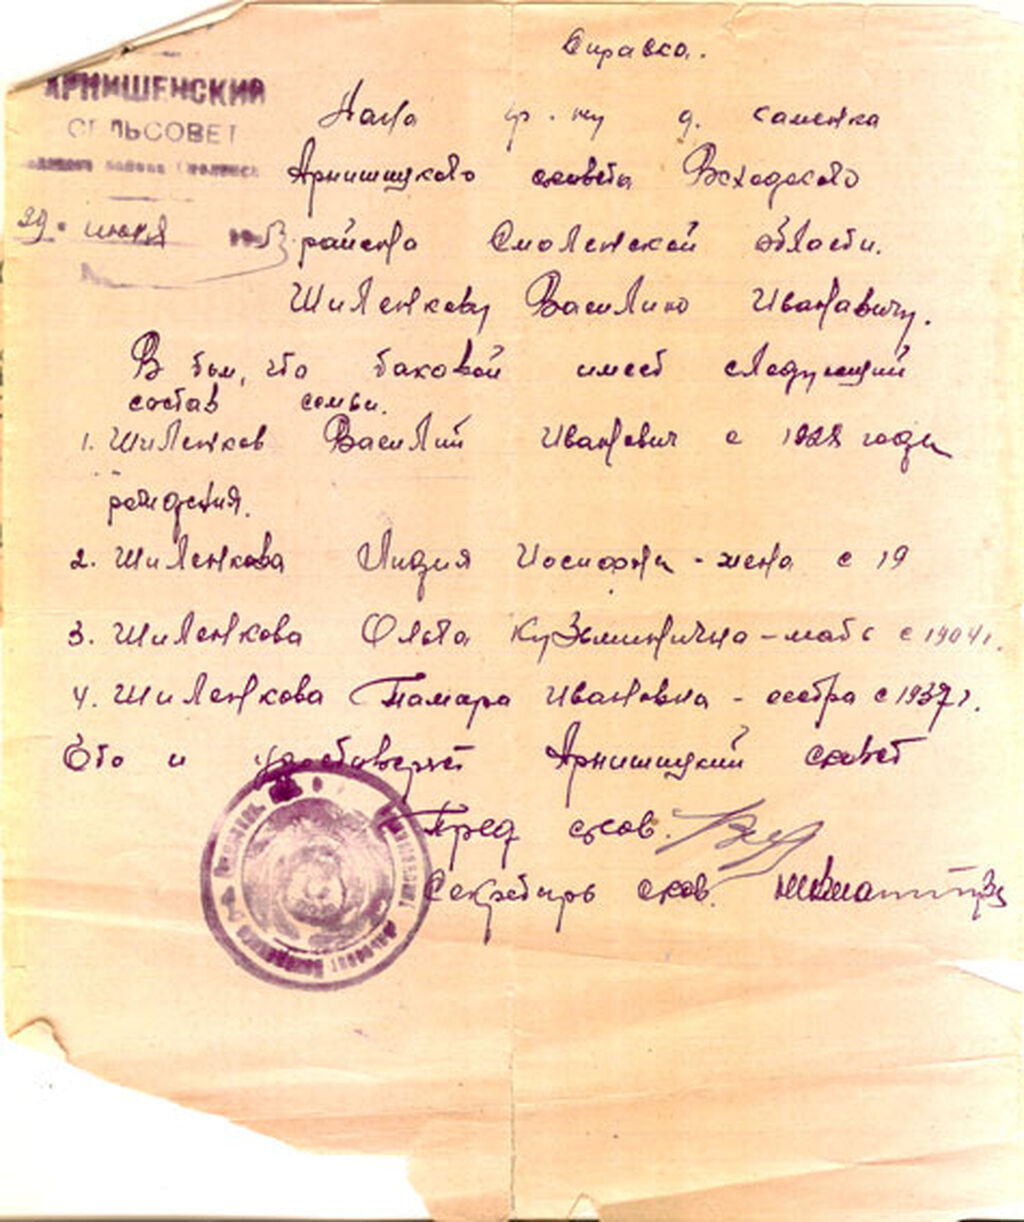 Справка.
АРНИШЕНСКИЙ
СЕЛЬСОВЕТ
района Смоленск
Дана гр-ну д. Каменка
Арнишицкого совета Всходского
29. июня 1953
района Смоленской области.
Шиленкову Василию Иванавичу.
В том, что таковой имеет следующий
состав семьи.
1. Шиленков Василий Иванович с 1928 года
рождения.
2. Шиленкова Лидия Иосифна - жена с 19
3. Шиленкова Ольга Кузьминична - мать с 1904 г.
4. Шиленкова Тамара Ивановна - сестра с 1937 г.
Ето и удостоверяет Арнишицкий совет
Пред с/сов.
Секретарь с/сов.